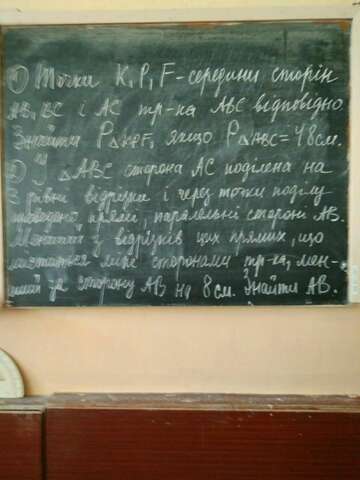 1) Точки K, P, F - середини сторін
AB, BC і AC тр-ка ABC відповідно
Знайти P△KPF, якщо P△ABC = 48 см.
2) У △ABC сторона AC поділена на
3 рівні відрізки і через точки поділу
проведено прямі, паралельні стороні AB.
Менший з відрізків цих прямих, що
містяться між сторонами тр-ка, мен-
ший за сторону AB на 8 см. Знайти AB.